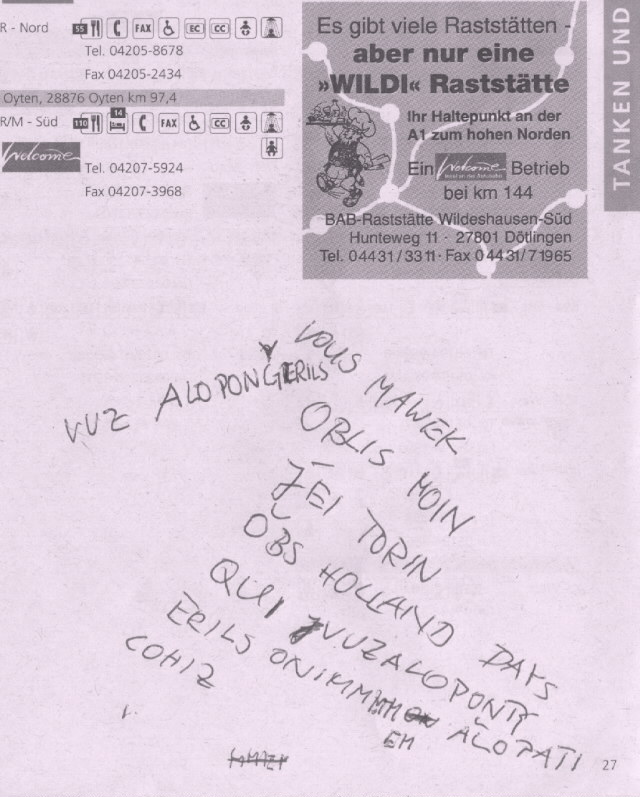 R - Nord 55 FAX EC CC
Tel. 04205-8678
Fax 04205-2434
Oyten, 28876 Oyten km 97,4
R/M - Süd 110 14 FAX CC
Welcome
Tel. 04207-5924
Fax 04207-3968
Es gibt viele Raststätten -
aber nur eine
»WILDI« Raststätte
Ihr Haltepunkt an der
A1 zum hohen Norden
Ein Welcome Betrieb
bei km 144
BAB-Raststätte Wildeshausen-Süd
Hunteweg 11 · 27801 Dötlingen
Tel. 0 44 31 / 33 11 · Fax 0 44 31 / 7 19 65
TANKEN UND
VOUS MAWEK
VUZ ALOPONGERILS
OBLIS MOIN
ZEI TORIN
OBS HOLLAND DAYS
QUI VUZALOPONTY
ERILS ALOPATI
EM
COHIZ
27